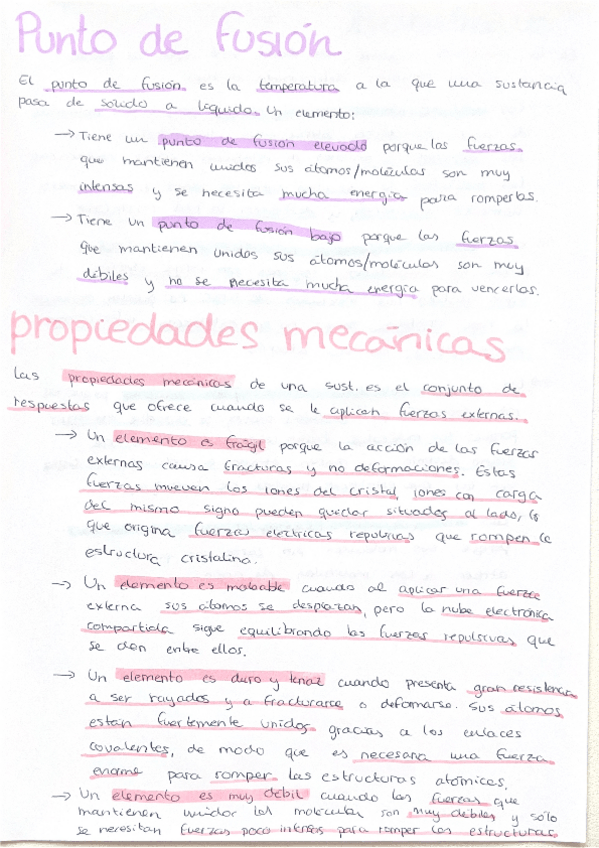 Punto de fusión
El punto de fusión es la temperatura a la que una sustancia
pasa de sólido a líquido. Un elemento:
→ Tiene un punto de fusión elevado porque las fuerzas
que mantienen unidos sus átomos/moléculas son muy
intensas y se necesita mucha energía para romperlas.
→ Tiene un punto de fusión bajo porque las fuerzas
que mantienen unidos sus átomos/moléculas son muy
débiles y no se necesita mucha energía para vencerlas.
propiedades mecánicas
Las propiedades mecánicas de una sust. es el conjunto de
respuestas que ofrece cuando se le aplican fuerzas externas.
→ Un elemento es frágil porque la acción de las fuerzas
externas causa fracturas y no deformaciones. Estas
fuerzas mueven los iones del cristal, iones con carga
del mismo signo pueden quedar situados al lado, lo
que origina fuerzas electricas repulsivas que rompen la
estructura cristalina.
→ Un elemento es maleable cuando al aplicar una fuerza
externa sus átomos se desplazan, pero la nube electrónica
compartida sigue equilibrando las fuerzas repulsivas que
se dan entre ellos.
→ Un elemento es duro y tenaz cuando presenta gran resistencia
a ser rayados y a fracturarse o deformarse. Sus átomos
estan fuertemente unidos gracias a los enlaces
covalentes, de modo que es necesaria una fuerza
enorme para romper las estructuras atómicas.
→ Un elemento es muy débil cuando las fuerzas que
mantienen unidos las moléculas son muy débiles y sólo
se necesitan fuerzas poco intensas para romper las estructuras.